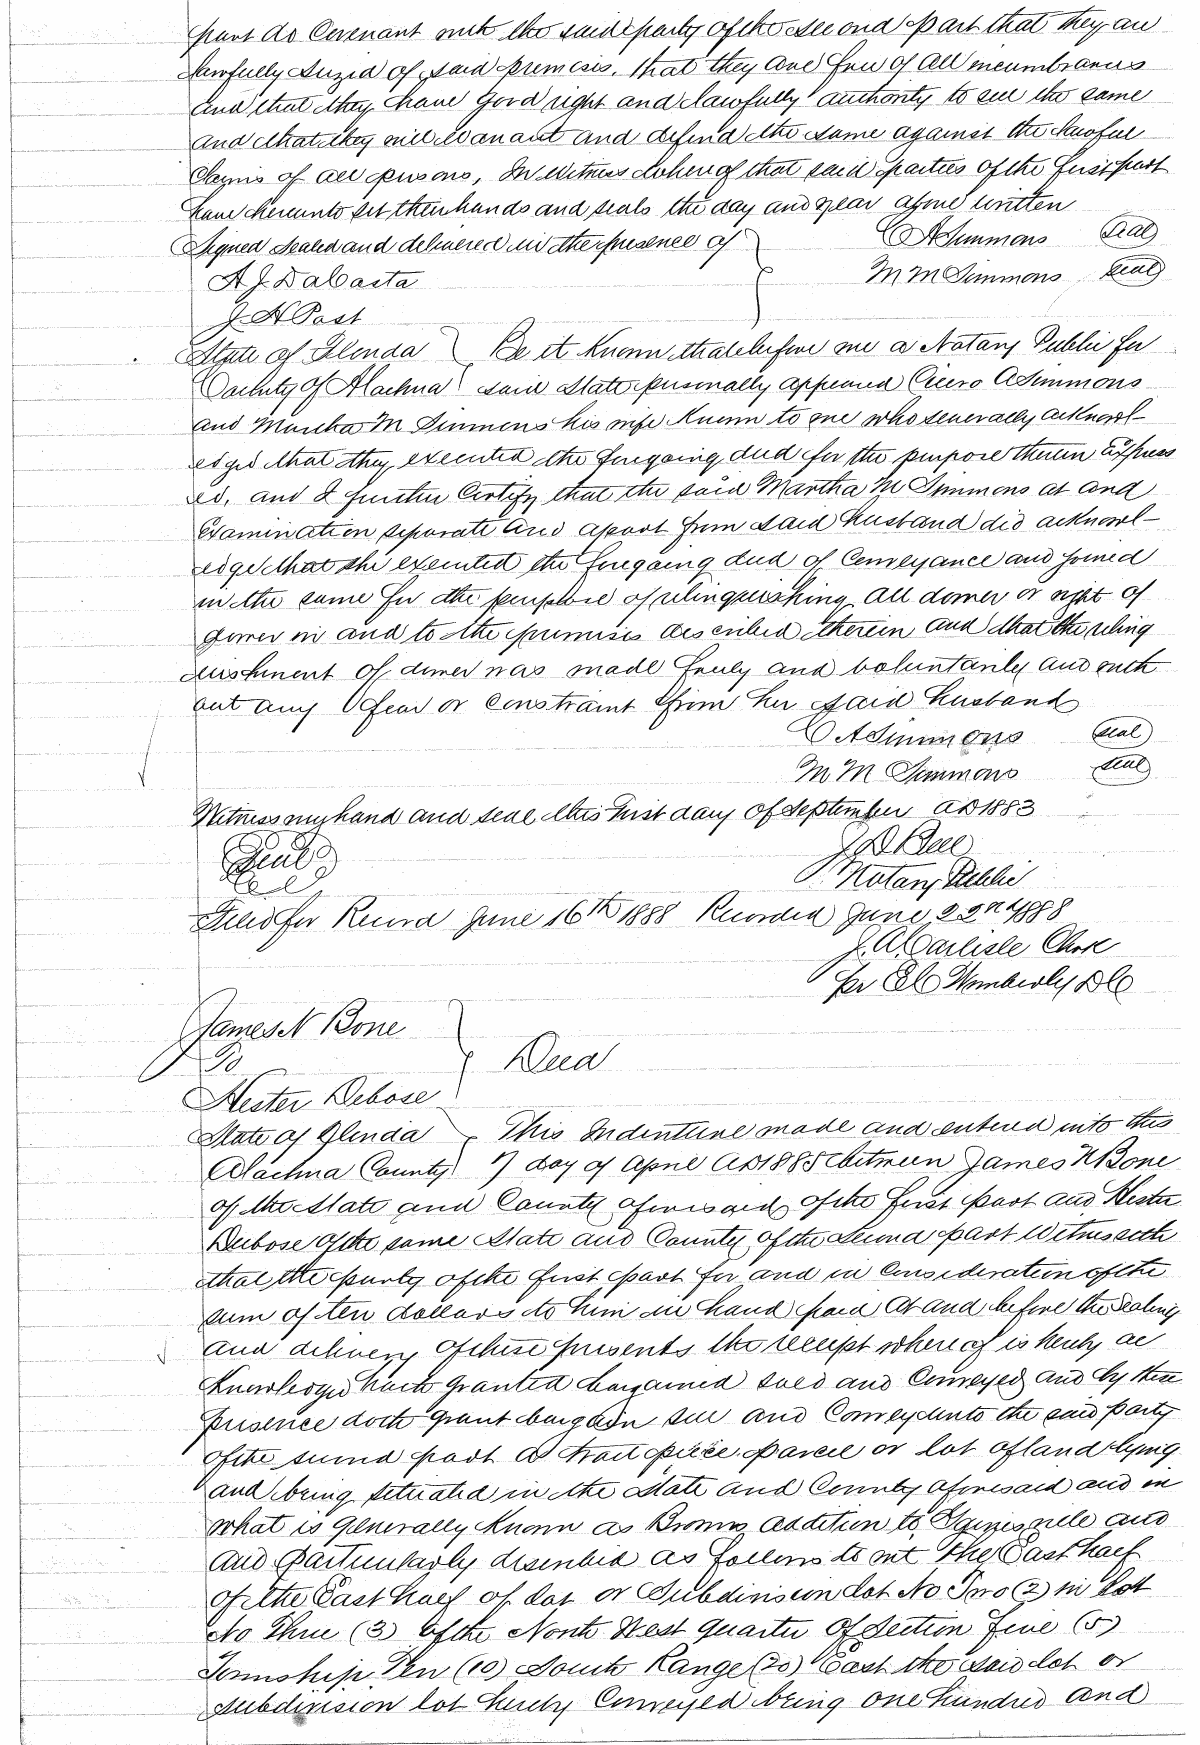 part do Covenant with the said party of the second part that they are
lawfully Siezid of said premises, that they are free of all incumbrances
and that they have good right and lawfully authority to sell the same
and that they will warrant and defend the same against the lawful
Claims of all persons, In Witness whereof that said parties of the first part
have hereunto set their hands and seals the day and year above written
Signed sealed and delivered in the presence of C A Simmons Seal
A. J. DaCosta M M Simmons Seal
J. H Post
State of Florida Be it Known that before me a Notary Public for
County of Alachua said State personally appeared Cicero A Simmons
and Martha M Simmons his wife Known to me who severally acknowl-
edged that they executed the foregoing deed for the purpose therein Express
ed, and I further Certify that the said Martha M Simmons at and
Examination separate and apart from said husband did acknowl-
edge that she executed the foregoing deed of Conveyance and joined
in the same for the purpose of relinquishing all dower or right of
dower in and to the premises described therein and that the relinq
uishment of dower was made freely and voluntarily and with
out any fear or Constraint from her said husband
C A Simmons Seal
M M Simmons Seal
Witness my hand and seal this First day of September AD 1883
Seal J D Bell
Notary Public
Filed for Record June 16th 1888 Recorded June 22nd 1888
J. A. Carlisle Clerk
Per Wimberly DC
James N Bone
To Deed
Hester Debose
State of Florida This Indenture made and entered into this
Alachua County 7 day of April AD 1885 between James N Bone
of the State and County aforesaid of the first part and Hester
Debose of the same State and County of the second part Witnesseth
that the party of the first part for and in Consideration of the
sum of ten dollars to him in hand paid at and before the Sealing
and delivery of these presents the receipt whereof is hereby ac
Knowledged hath granted bargained sold and Conveyed and by these
presence doth grant bargain sell and Convey unto the said party
of the second part a tract piece parcel or lot of land lying
and being situated in the State and County aforesaid and in
what is generally known as Browns addition to Gainesville and
and particularly described as follows to wit The East half
of the East half of lot or Subdivision lot No Two (2) in Lot
No Three (3) of the North West quarter of Section Five (5)
Township Ten (10) South Range (20) East the said lot or
subdivision lot hereby Conveyed being one hundred and